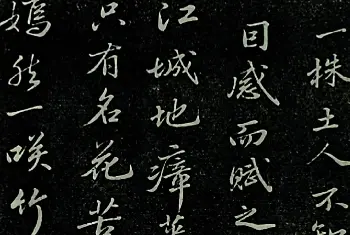 一株土人不知
因感而赋之
江城地瘴蕃
只有名花苦
嫣然一笑竹